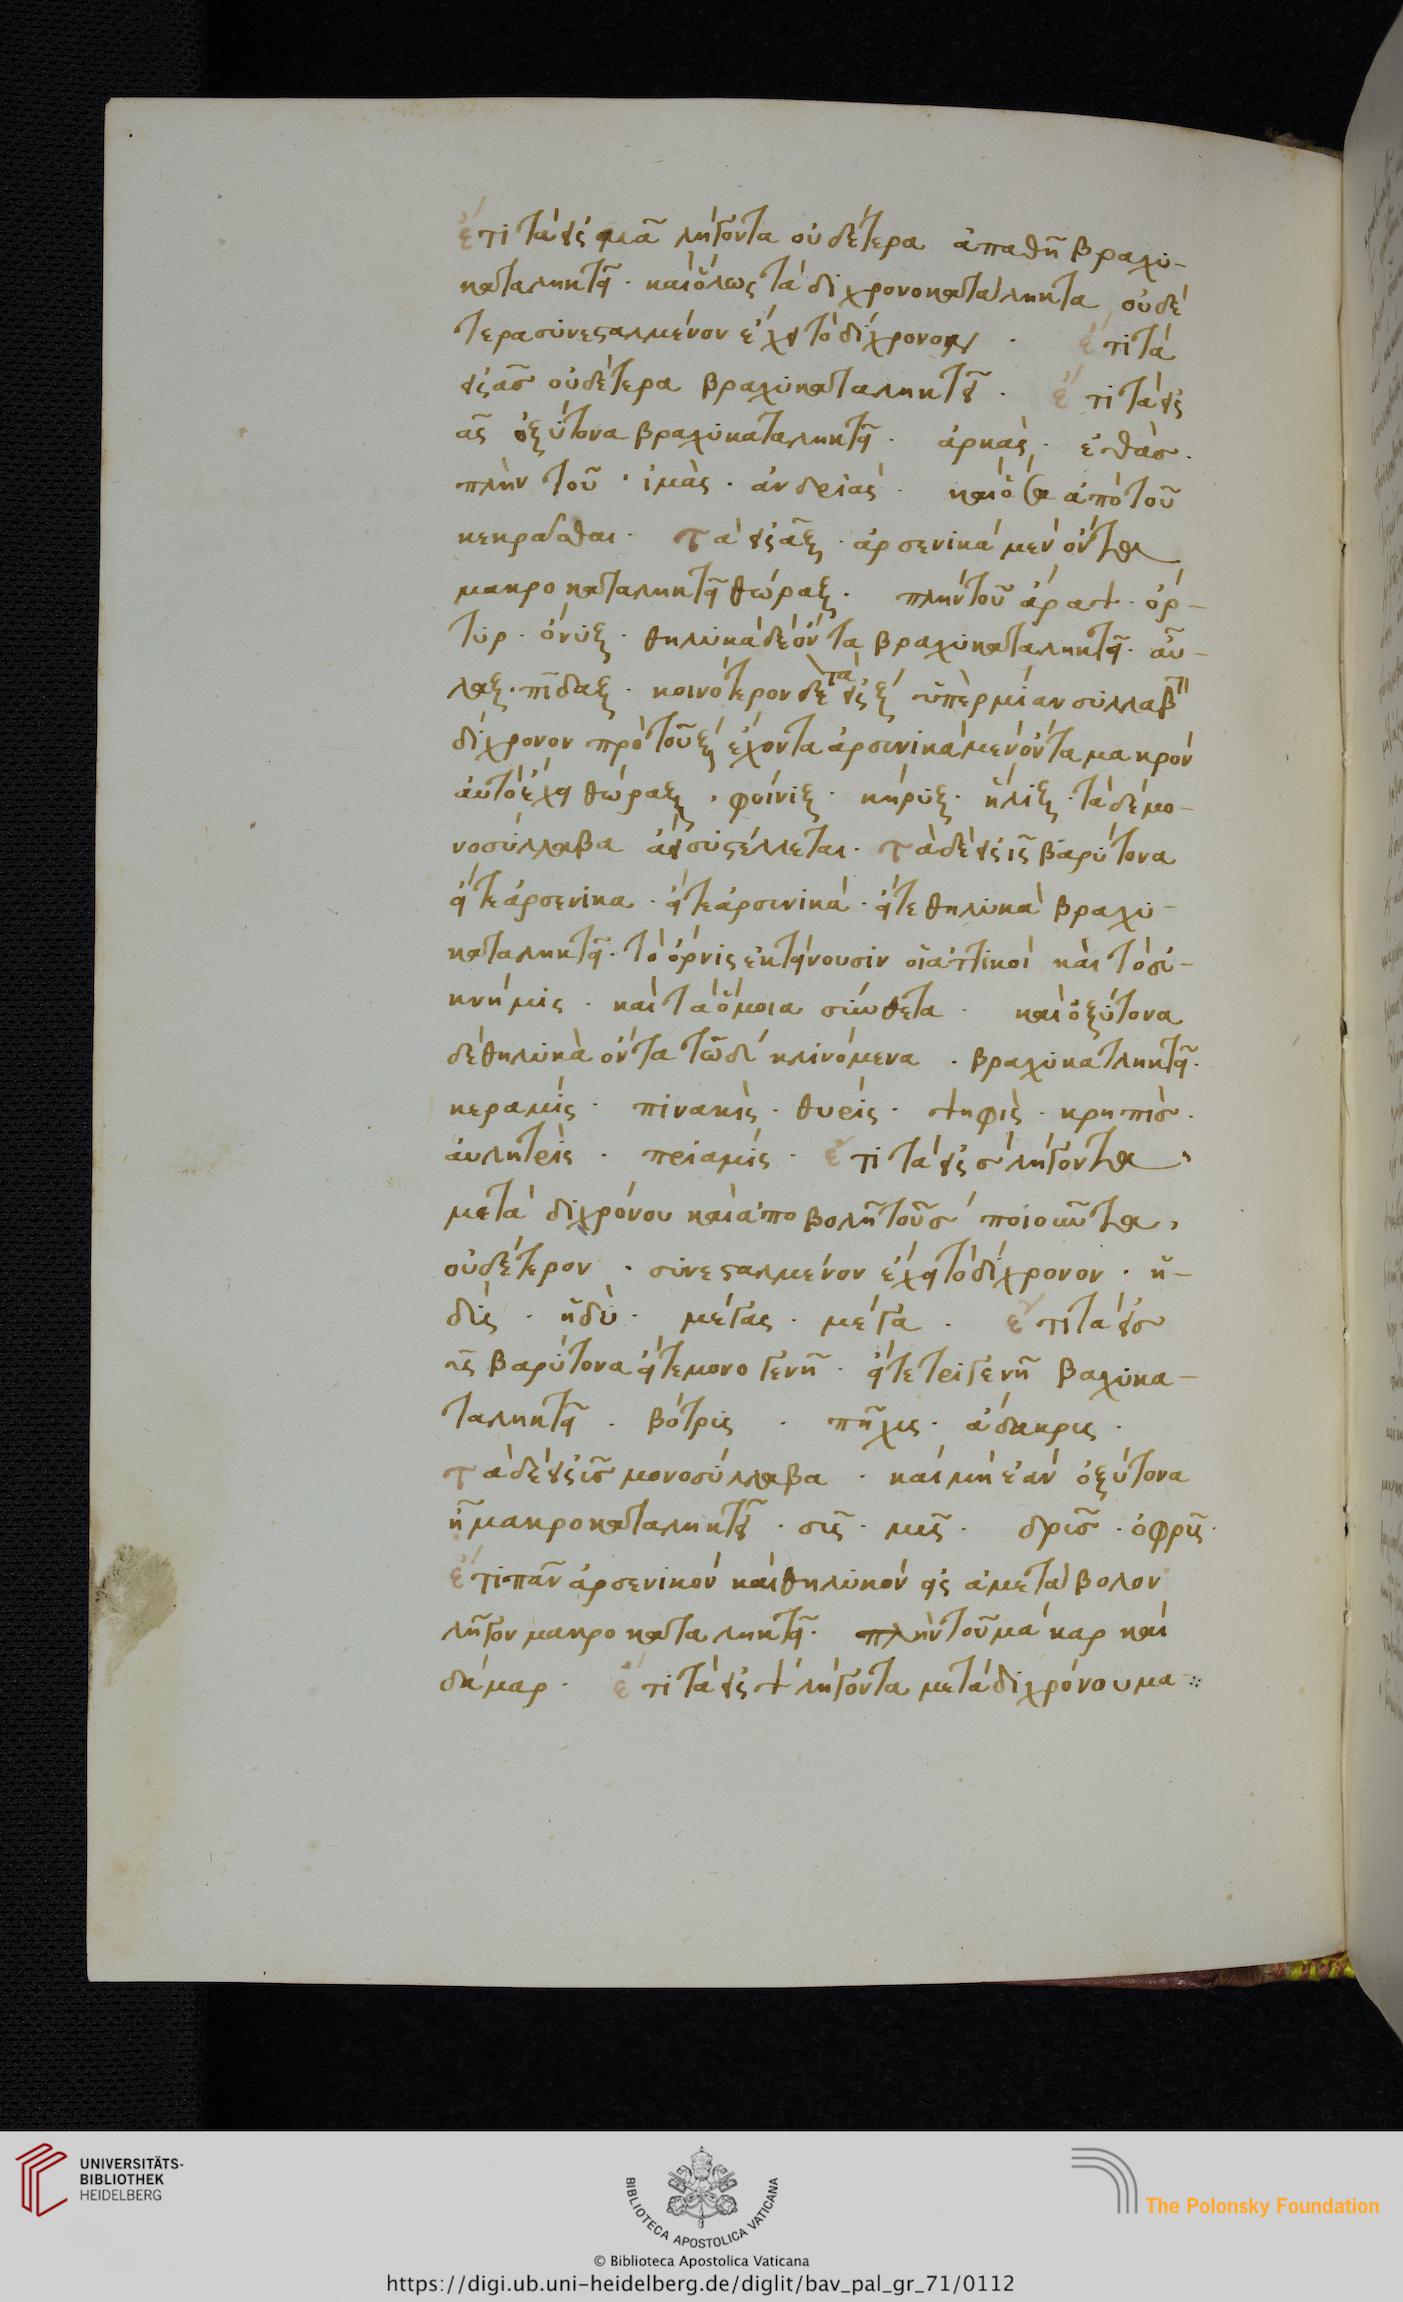 ἔτι τὰ εἰς μα λήγοντα οὐδέτερα ἀπαθῆ βραχυ-
καταληκτεῖ · καὶ ὅλως τὰ διχρονοκατάληκτα οὐδέ
τερα συνεσταλμένον ἔχει τὸ δίχρονον · ἔτι τὰ
εἰς ας οὐδέτερα βραχυκαταληκτεῖ · ἔτι τὰ εἰς
ας ὀξύτονα βραχυκαταληκτεῖ · ἀρκάς ·
πλὴν τοῦ · ἱμὰς · ἀνδριάς · καὶ ἀπὸ τοῦ
κεκρᾶσθαι · τὰ εἰς αξ · ἀρσενικὰ μὲν ὄντα
μακροκαταληκτεῖ θώραξ · πλὴν τοῦ ἄραψ · ὀρ-
τυξ · ὄνυξ · θηλυκὰ δὲ ὄντα βραχυκαταληκτεῖ · αὖ-
λαξ · πῖδαξ · κοινότερον δὲ τὰ εἰς ξ ὑπὲρ μίαν συλλαβὴν
δίχρονον πρὸ τοῦ ξ ἔχοντα ἀρσενικὰ μὲν ὄντα μακρὸν
αὐτὸ ἔχει θώραξ · φοίνιξ · κήρυξ · ἧλιξ · τὰ δὲ μο-
νοσύλλαβα ἀεὶ συστέλλεται · τὰ δὲ εἰς ις βαρύτονα
εἴτε ἀρσενικὰ · εἴτε ἀρσενικὰ · εἴτε θηλυκὰ βραχυ-
καταληκτεῖ · τὸ ὄρνις ἐκτείνουσιν οἱ ἀττικοὶ καὶ τὸ εὐ-
κνήμις · καὶ τὰ ὅμοια σύνθετα · καὶ ὀξύτονα
δὲ θηλυκὰ ὄντα τῶ δι κλινόμενα · βραχυκατληκτεῖ ·
κεραμίς · πινακὶς · θυρίς · ψηφὶς · κρηπὶς ·
αὐλητρὶς · πριαμίς · ἔτι τὰ εἰς ς λήγοντα ,
μετὰ διχρόνου καὶ ἀποβολῆ τοῦ ς ποιοῦντα ,
οὐδέτερον · συνεσταλμένον ἔχει τὸ δίχρονον · ἡ-
δὺς · ἡδὺ · μέγας · μέγα · ἔτι τὰ εἰς
υς βαρύτονα εἴτε μονογενῆ · εἴτε τριγενῆ βαχυκα-
ταληκτεῖ · βότρυς · πῆχυς · ἄδακρυς ·
τὰ δὲ εἰς υς μονοσύλλαβα · καὶ μὴ ἐὰν ὀξύτονα
ἦ μακροκαταληκτεῖ · σῦς · μῦς · δρῦς · ὀφρῦς ·
ἔτι πᾶν ἀρσενικὸν καὶ θηλυκὸν εἰς ἀμετάβολον
λῆγον μακροκαταληκτεῖ · πλὴν τοῦ μάκαρ καὶ
δάμαρ · ἔτι τὰ εἰς ψ λήγοντα μετὰ διχρόνου μα
UNIVERSITÄTS-
BIBLIOTHEK
HEIDELBERG
BIBLIOTECA APOSTOLICA VATICANA
© Biblioteca Apostolica Vaticana
The Polonsky Foundation
https://digi.ub.uni-heidelberg.de/diglit/bav_pal_gr_71/0112